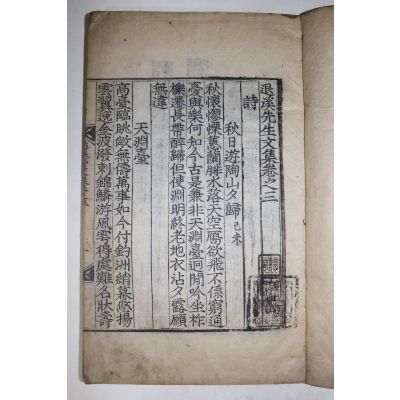 退溪先生文集卷之三
詩
秋日遊陶山夕歸 己未
秋懷憀慄蕙蘭腓水落天空鴈欲飛不係窮通
憂與樂何知今古是兼非天淵臺迥閒吟坐柞
櫟遷長帶醉歸但使淵明終老地衣沾夕露願
無違
天淵臺
高臺臨眺敞無儔萬事如今付釣洲綃幕悠揚
雲翼逸金波潑剌錦鱗游風雩得處難名狀壽